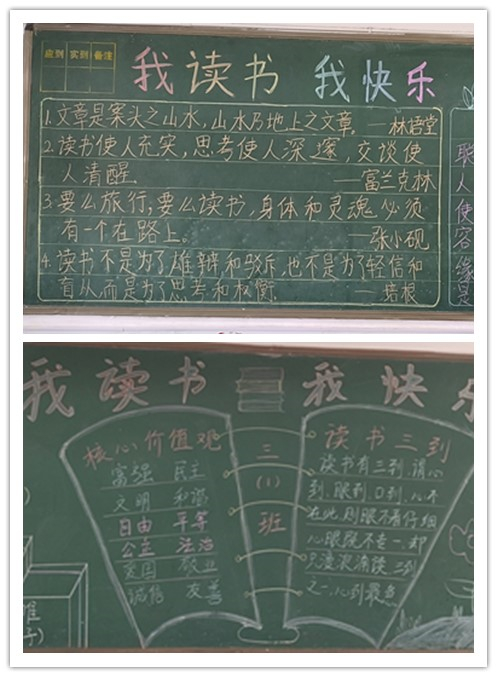 应到 实到 备注
我读书 我快乐
1.文章是案头之山水,山水乃地上之文章。—林语堂
2.读书使人充实,思考使人深邃,交谈使
人清醒. —富兰克林
3.要么旅行,要么读书,身体和灵魂必须
有一个在路上。 —张小砚
4.读书不是为了雄辩和驳斥,也不是为了轻信和
盲从,而是为了思考和权衡. —培根
人
使
容
缘
是
我读书 我快乐
核心价值观
富强 民主
文明 和谐
自由 平等
公正 法治
爱国 敬业
诚信 友善
三
(1)
班
读书三到
读书有三到,谓心
到、眼到、口到,心不
在此,则眼不看仔细
心眼既不专一,却
只漫浪诵读 三到
之一,心到最急